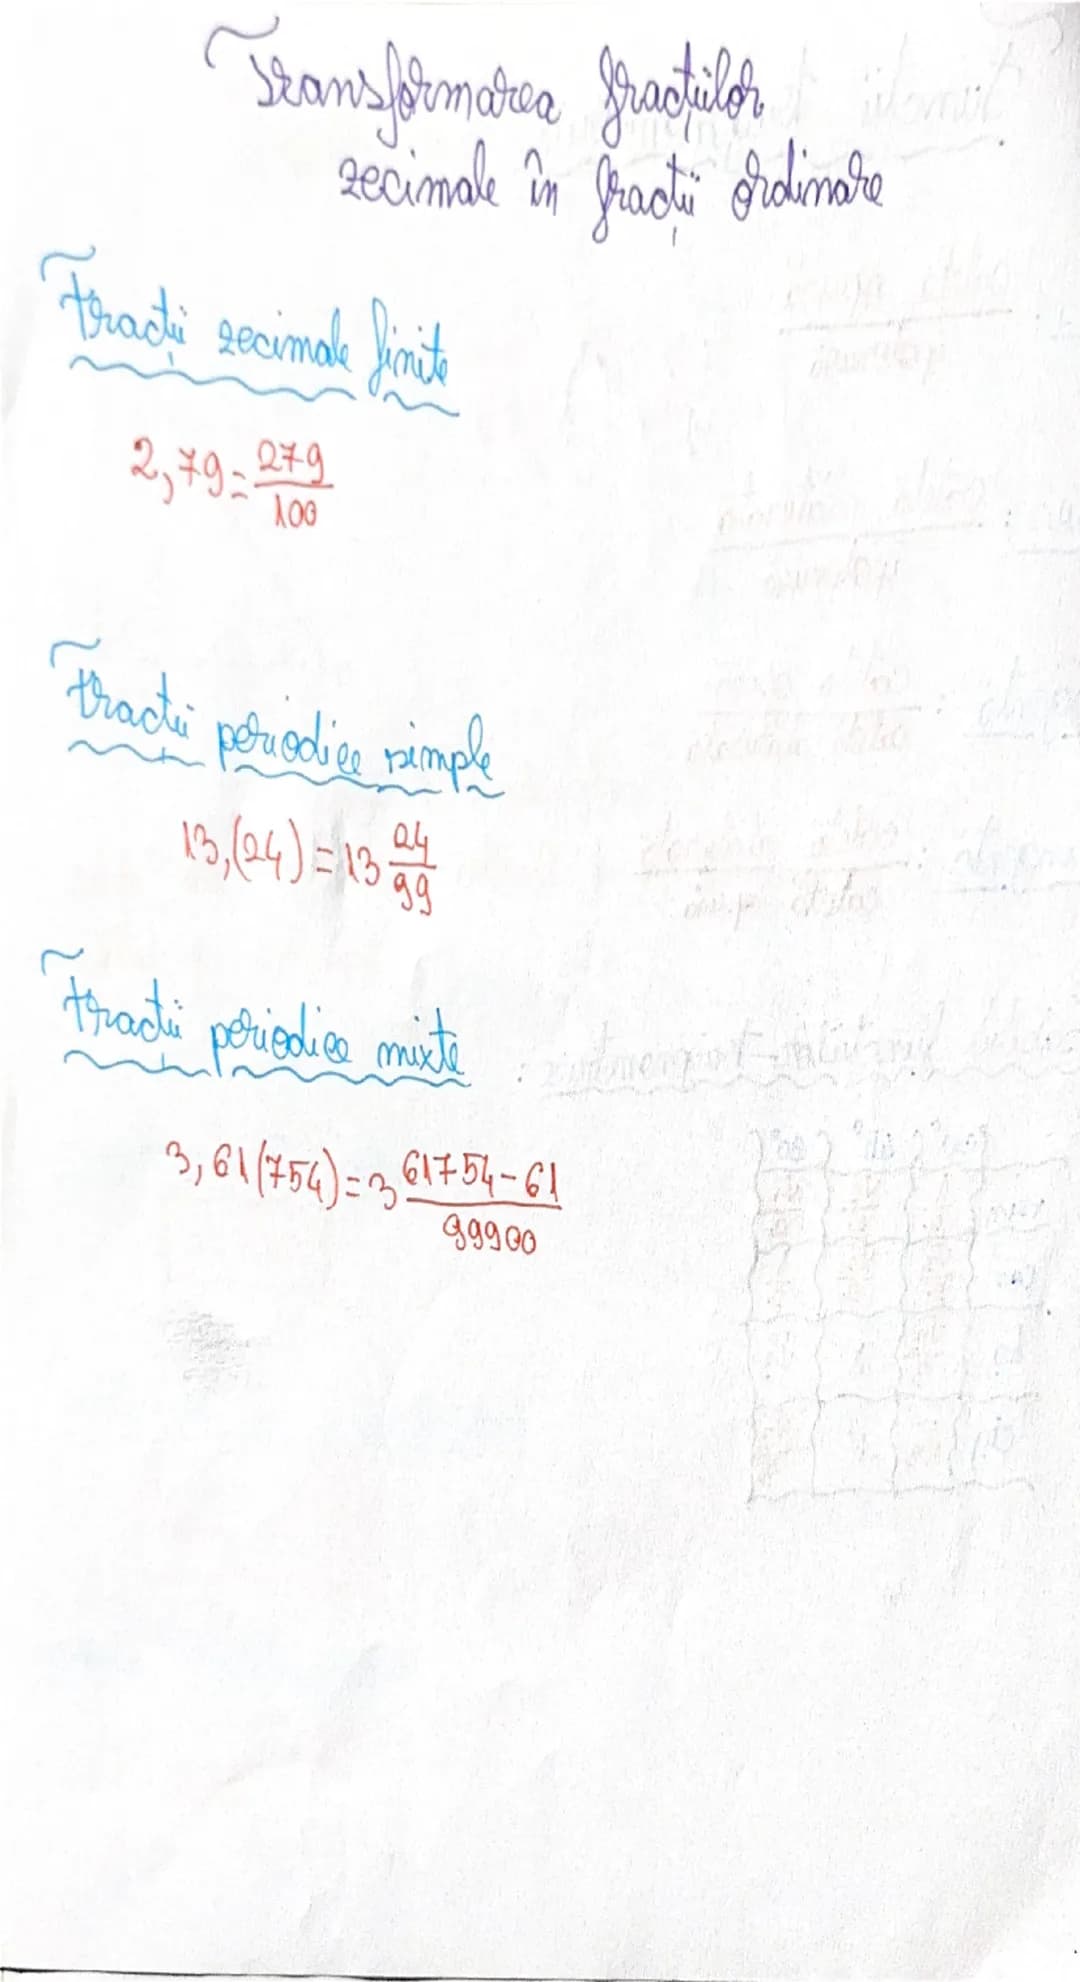 Transformarea fracțiilor
zecimale în fracții ordinare
Fracții zecimale finite
2,79=279/100
Fracții periodice simple
13,(24)=13 24/99
Fracții periodice mixte
3,61(754)=3 61754-61/99900